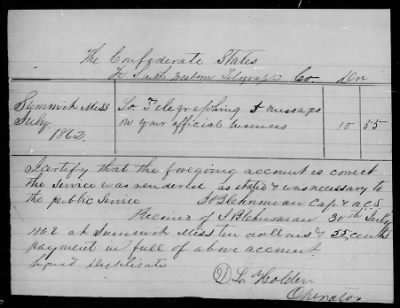 The Confederate States
To South Western Telegraph Co. Dr
Summit Miss To Telegraphing 5 messages
July on your official business 10 55
1862
I certify that the foregoing account is correct
the service was rendered as stated & was necessary to
the public service Capt & A.C.S.
Received of 30th July
1862 at Summit Miss ten dollars & 55 cents
payment in full of above account
Signed Duplicates
Holden
Operator